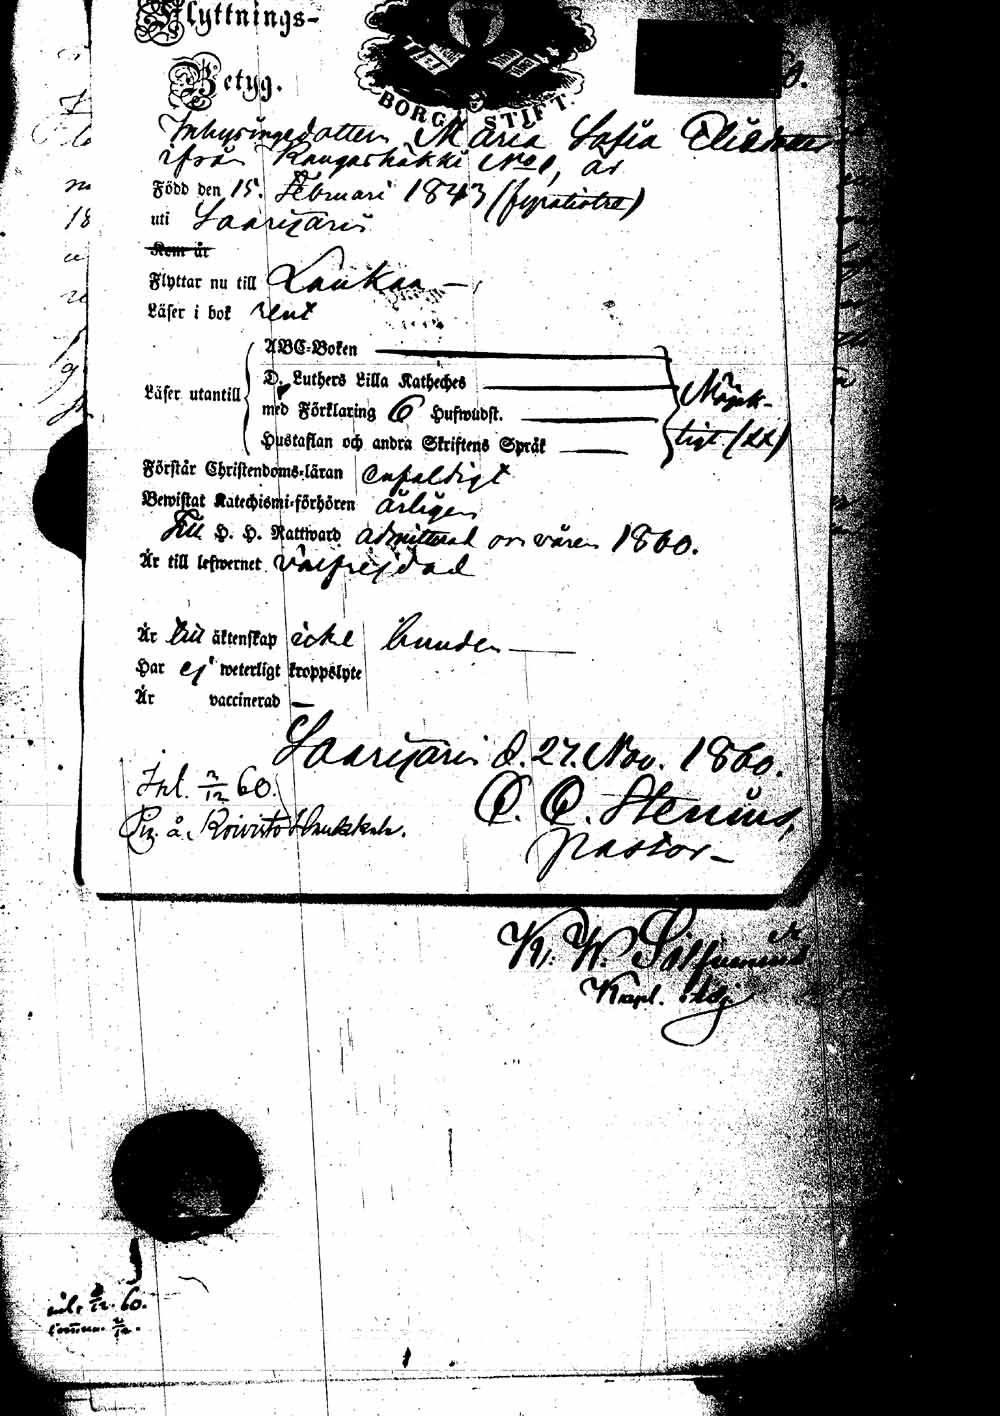 Flyttnings-
Betyg.
BORGÅ STIFT.
Inhysingedottern Maria Sofia Eliædotter
ifrån Kangashäkki No 1, är
Född den 15. Februari 1843 (fyratiotre)
uti Saarijärvi
Kom år
Flyttar nu till Laukaa —
Läser i bok rent
ABC-Boken
D. Luthers Lilla Katheches
Läser utantill
med Förklaring 6 Hufwudst.
Hustaflan och andra Skriftens Språk
Nöjak-
tigt (xx)
Förstår Christendoms-läran enfaldigt
Bewistat Katechismi-förhören årligen
Till H. H. Nattward admitterad om våren 1860.
Är till lefwernet välfrejdad
Är till äktenskap icke bunden —
Har ej weterligt kroppslyte
Är vaccinerad —
Saarijärvi d. 27. Nov. 1860.
Inl. 2/12 60.
Stenius,
Pig. å. Koivisto
Pastor —
K. W.
Kapl. Adj
inl. 2/12. 60.